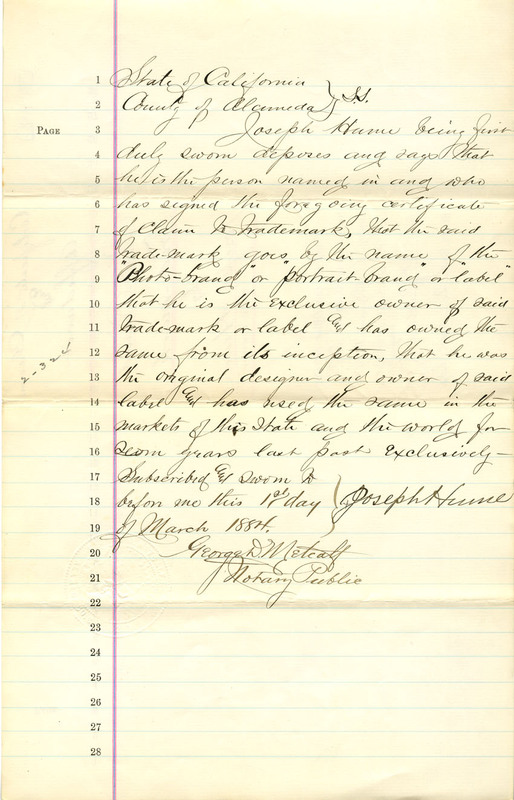 1 State of California
2 County of Alameda } S.S.
PAGE 3 Joseph Hume being first
4 duly sworn deposes and says that
5 he is the person named in and who
6 has signed the foregoing certificate
7 of Claim to Trademark, that the said
8 trade-mark goes by the name of "the
9 "Photo-brand" or "portrait-brand" or label"
10 that he is the exclusive owner of said
11 trade-mark or label & has owned the
12 same from its inception, that he was
13 the original designer and owner of said
14 label & has used the same in the
15 markets of this State and the world for
16 seven years last past exclusively-
17 Subscribed & sworn to
18 before me this 1st day } Joseph Hume
19 of March 1884.
20 George D. Metcalf
21 Notary Public
22
23
24
25
26
27
28
2-324